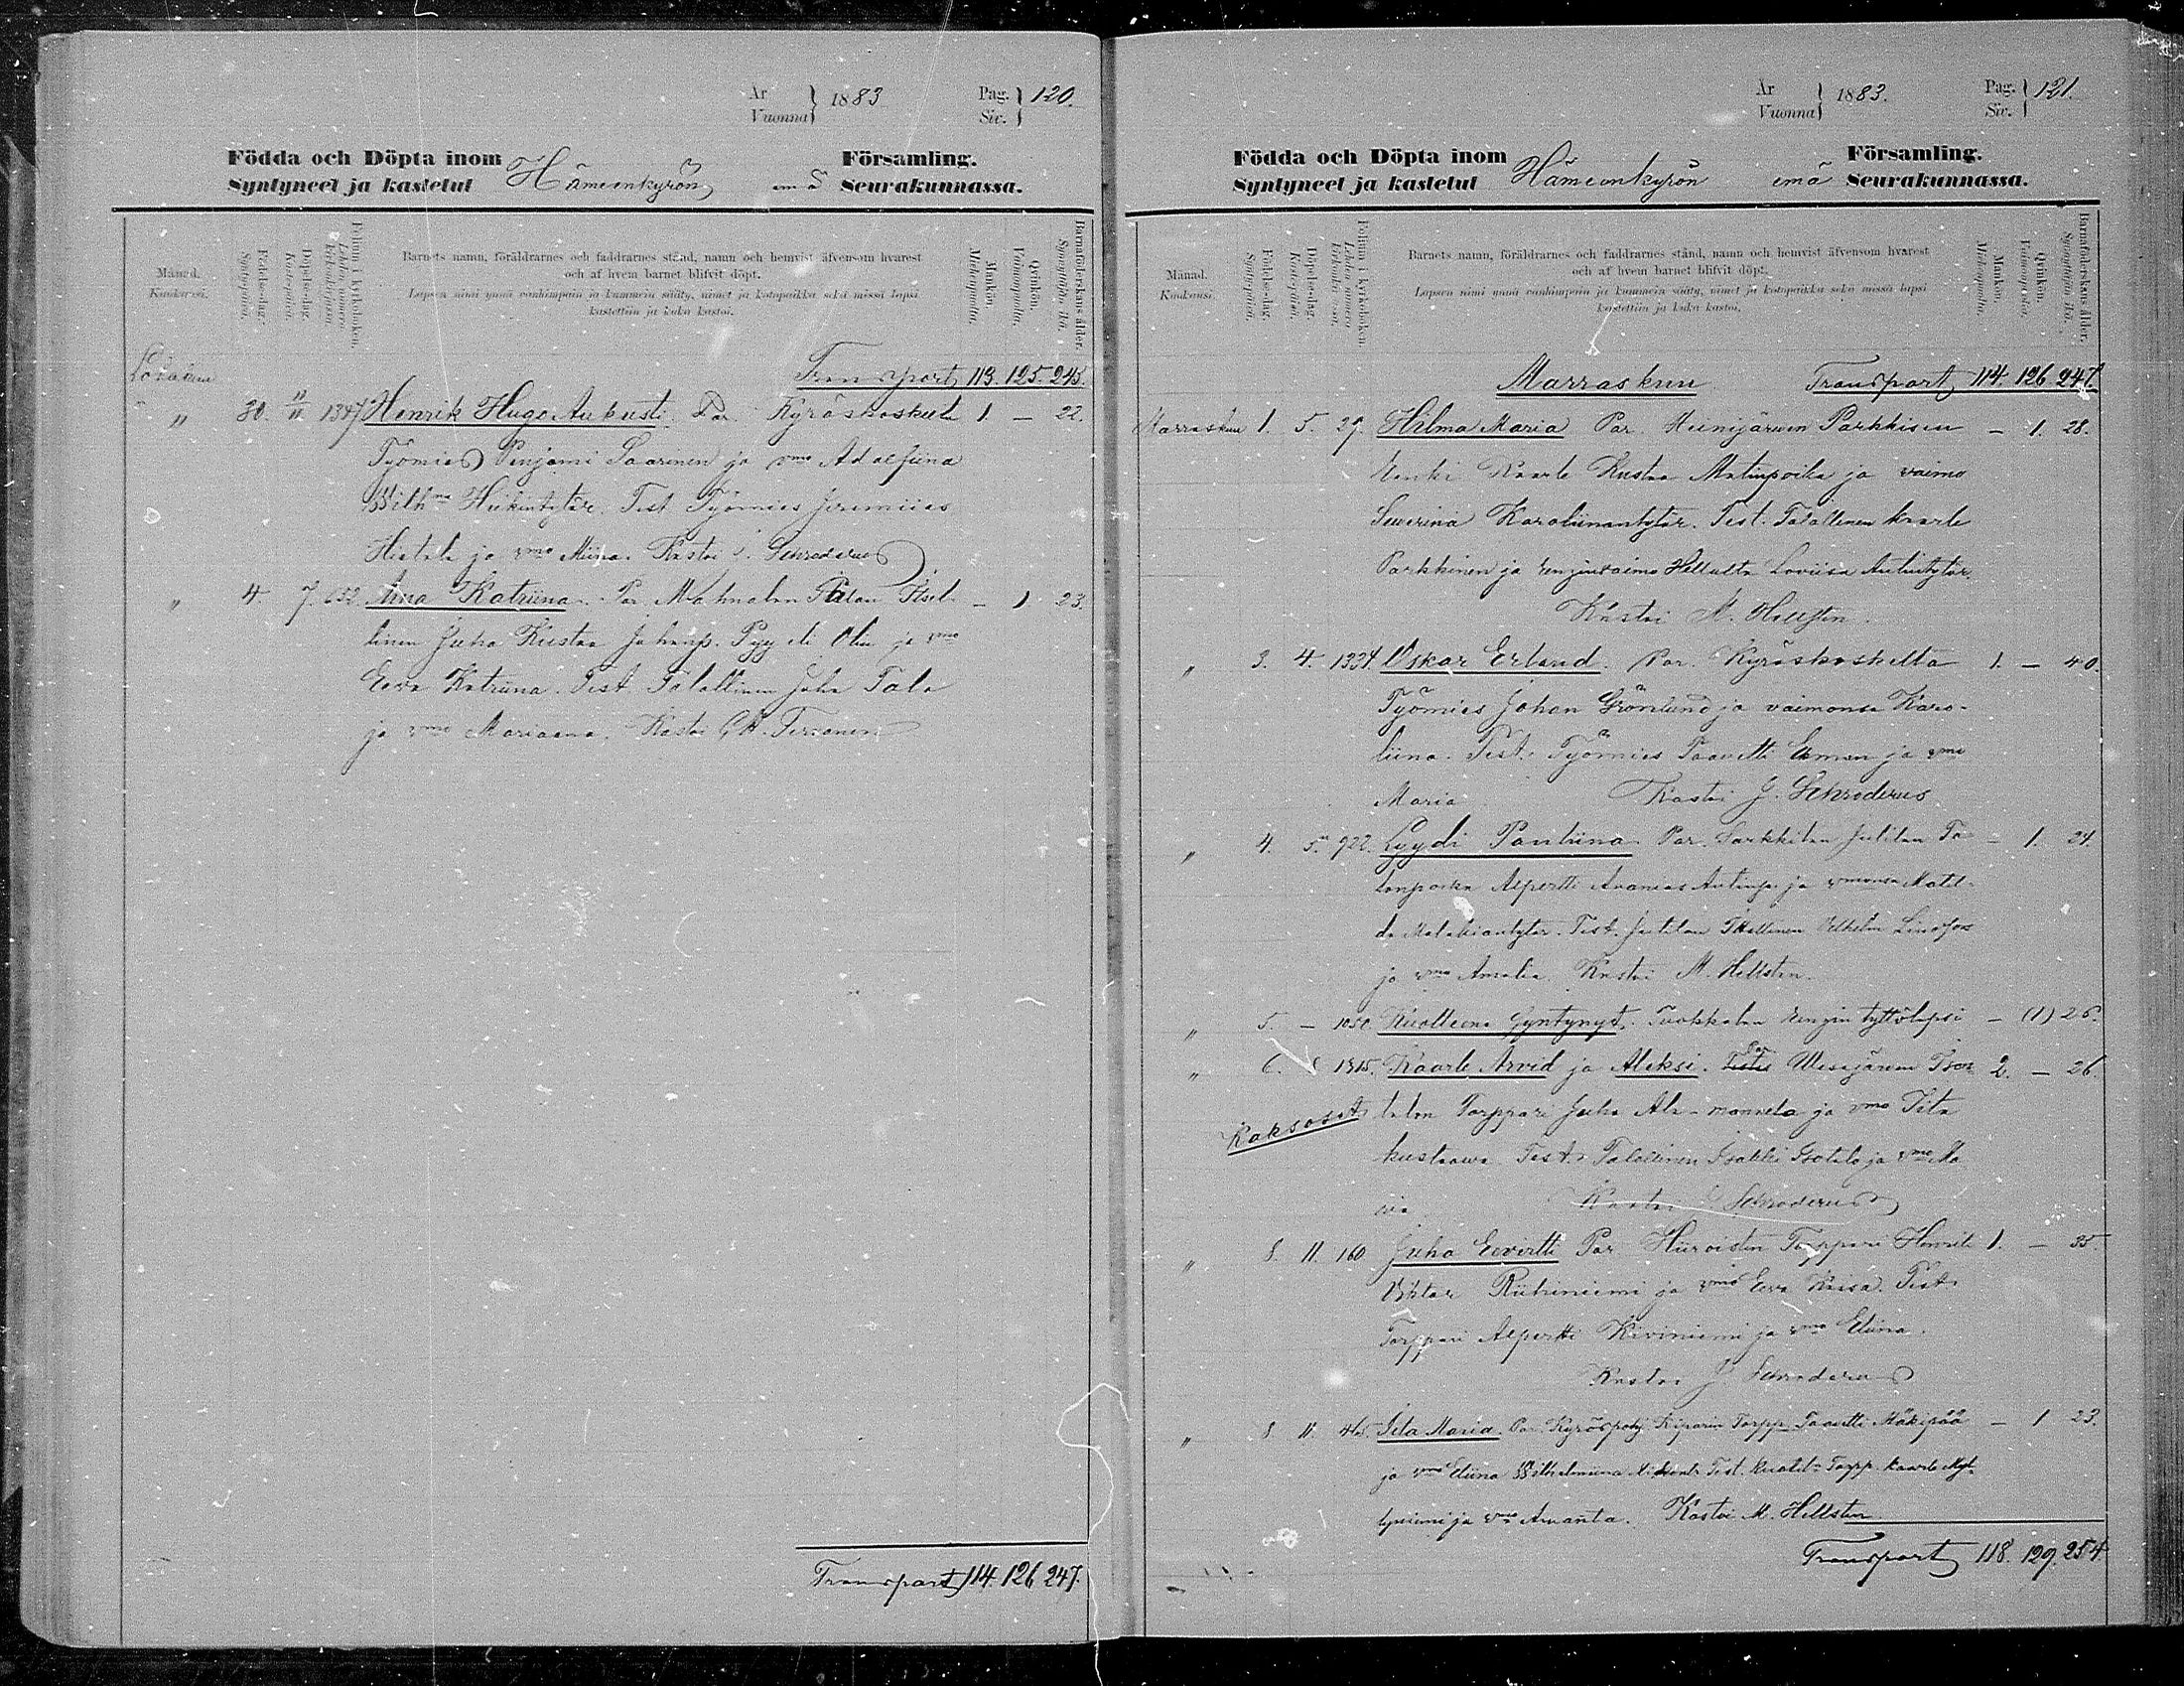 År Vuonna } 1883 Pag. Siv. } 120.
Födda och Döpta inom Församling.
Syntyneet ja kastetut Hämeenkyrön emä Seurakunnassa.
Månad. Kuukausi.
Födelse-dag. Syntypäivä.
Döpelse-dag. Kastepäivä.
Folium i kyrkoboken. Lehden numero kirkonkirjassa.
Barnets namn, föräldrarnes och faddrarnes stånd, namn och hemvist äfvensom hvarest
och af hvem barnet blifvit döpt.
Lapsen nimi ynnä vanhimpain ja kummein sääty, nimet ja kotopaikka sekä missä lapsi
kastettiin ja kuka kastoi.
Mankön. Miehenpuolia.
Qvinkön. Vaimonpuolia.
Barnaföderskans ålder. Synnyttäjän ikä.
Lokakuu Transport 113. 125. 245.
" 30. 11/11 1347 Henrik Hugo Aukusti. Par. Kyröskoskelta 1 — 22.
Työmies Penjami Saarinen ja vmo Adolfiina
Wilhma Heikintytär. Test Työmies Jeremiias
Hietala ja vmo Miina. Kastoi J. Schroderus
" 4. 7. 652. Aina Katriina. Par. Mahnalan Talallinen Juho Kustaa — 1 23.
Eeva Katriina. Test. Talallinen Juha Tala
ja vmo Mariaana. Kastoi
Transport 114. 126 247.
År Vuonna } 1883. Pag. Siv. } 121.
Födda och Döpta inom Församling.
Syntyneet ja kastetut Hämeenkyrön emä Seurakunnassa.
Månad. Kuukausi.
Födelse-dag. Syntypäivä.
Döpelse-dag. Kastepäivä.
Folium i kyrkoboken. Lehden numero kirkonkirjassa.
Barnets namn, föräldrarnes och faddrarnes stånd, namn och hemvist äfvensom hvarest
och af hvem barnet blifvit döpt.
Lapsen nimi ynnä vanhimpain ja kummein sääty, nimet ja kotopaikka sekä missä lapsi
kastettiin ja kuka kastoi.
Mankön. Miehenpuolia.
Qvinkön. Vaimonpuolia.
Barnaföderskans ålder. Synnyttäjän ikä.
Marraskuu Transport 114. 126 247.
Marraskuu 1. 5. 29. Hilma Maria Par. Heinijärven Parkkisen — 1. 28.
Renki Kaarle Kustaa Matinpoika ja vaimo
Severina Karoliinantytär. Test. Talallinen Kaarle
Parkkinen ja renginvaimo Lovisa Antintytär.
Kastoi M. Hellsten.
" 3. 4. 1334. Oskar Erland. Par. Kyröskoskelta 1. — 40.
Työmies Johan Grönlund ja vaimonsa Karo-
liina. Test. Työmies Taavetti Ekman ja vmo
Maria Kastoi J. Schroderus
" 4. 5. 922. Lyydi Pauliina. Par. Sarkkilan Julilan Ta- — 1. 24.
lonpoika Alpertti Ananias Antinp. ja vmonsa Matil-
da Malakiantytär. Test. Julilan Talallinen Vilhelm
ja vmo Amalia. Kastoi M. Hellsten.
" 5. — 1050. Kuolleena Syntynyt. Tuokkolan Rengin tyttölapsi — (1) 26.
" 6. 1315. Kaarle Arvid ja Aleksi. Par. 2. — 26.
Kaksoset talon Torppari Juha Ala-mannela ja vmo Iita
Kustaava. Test. Talallinen Isakki Isotalo ja vmo Ma
ria Kastoi J. Schroderus
" 8. 11. 160 Juho Eevertti Par. Hiiroisten Torppari Henrik 1. — 35.
Vihtor Riihiniemi ja vmo Eeva Kaisa. Test.
Torppari Alpertti Kiviniemi ja vmo Eliina.
Kastoi J. Schroderus
" 8. 11. 465. Iita Maria. Par. Kyröspohj. Kiparin Torpp. Taavetti Mäkipää — 1 23.
ja vmo Eliina Wilhelmiina Test. Torpp. Kaarle Myl-
lyniemi ja vmo Amanta. Kastoi M. Hellsten
Transport 118. 129. 254.